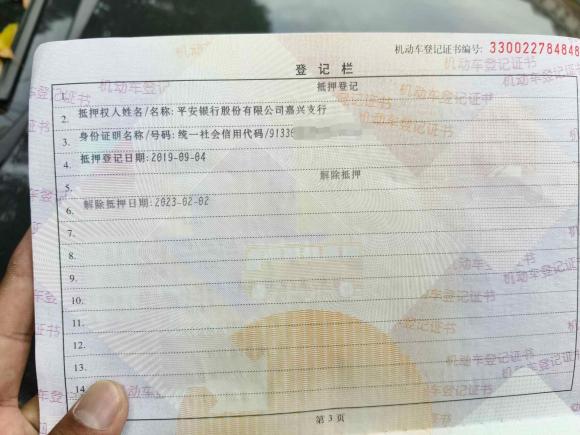 机动车登记证书编号: 330022784848
登记栏
1. 抵押登记
2. 抵押权人姓名/名称:平安银行股份有限公司嘉兴支行
3. 身份证明名称/号码:统一社会信用代码/91330
4. 抵押登记日期:2019-09-04
5. 解除抵押
6. 解除抵押日期:2023-02-02
7.
8.
9.
10.
11.
12.
13.
14.
第3页